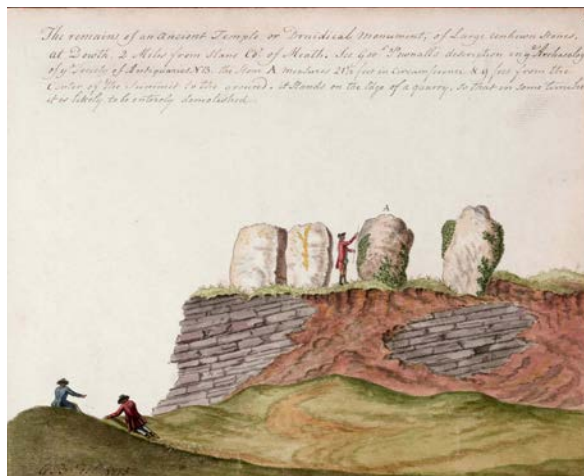 The remains of an ancient Temple or Druidical monument, of Large unhewn Stones,
at Dowth, 2 Miles from Slane Co. of Meath. See Gov.r Pownall's description in y.e Archaeology
of y.e Society of Antiquaries NB. the Stone A measures 21½ feet in Circumference & 9 feet from the
Center of the Summit to the ground, it Stands on the Edge of a quarry, so that in some time
it is likely to be entirely demolished.
A